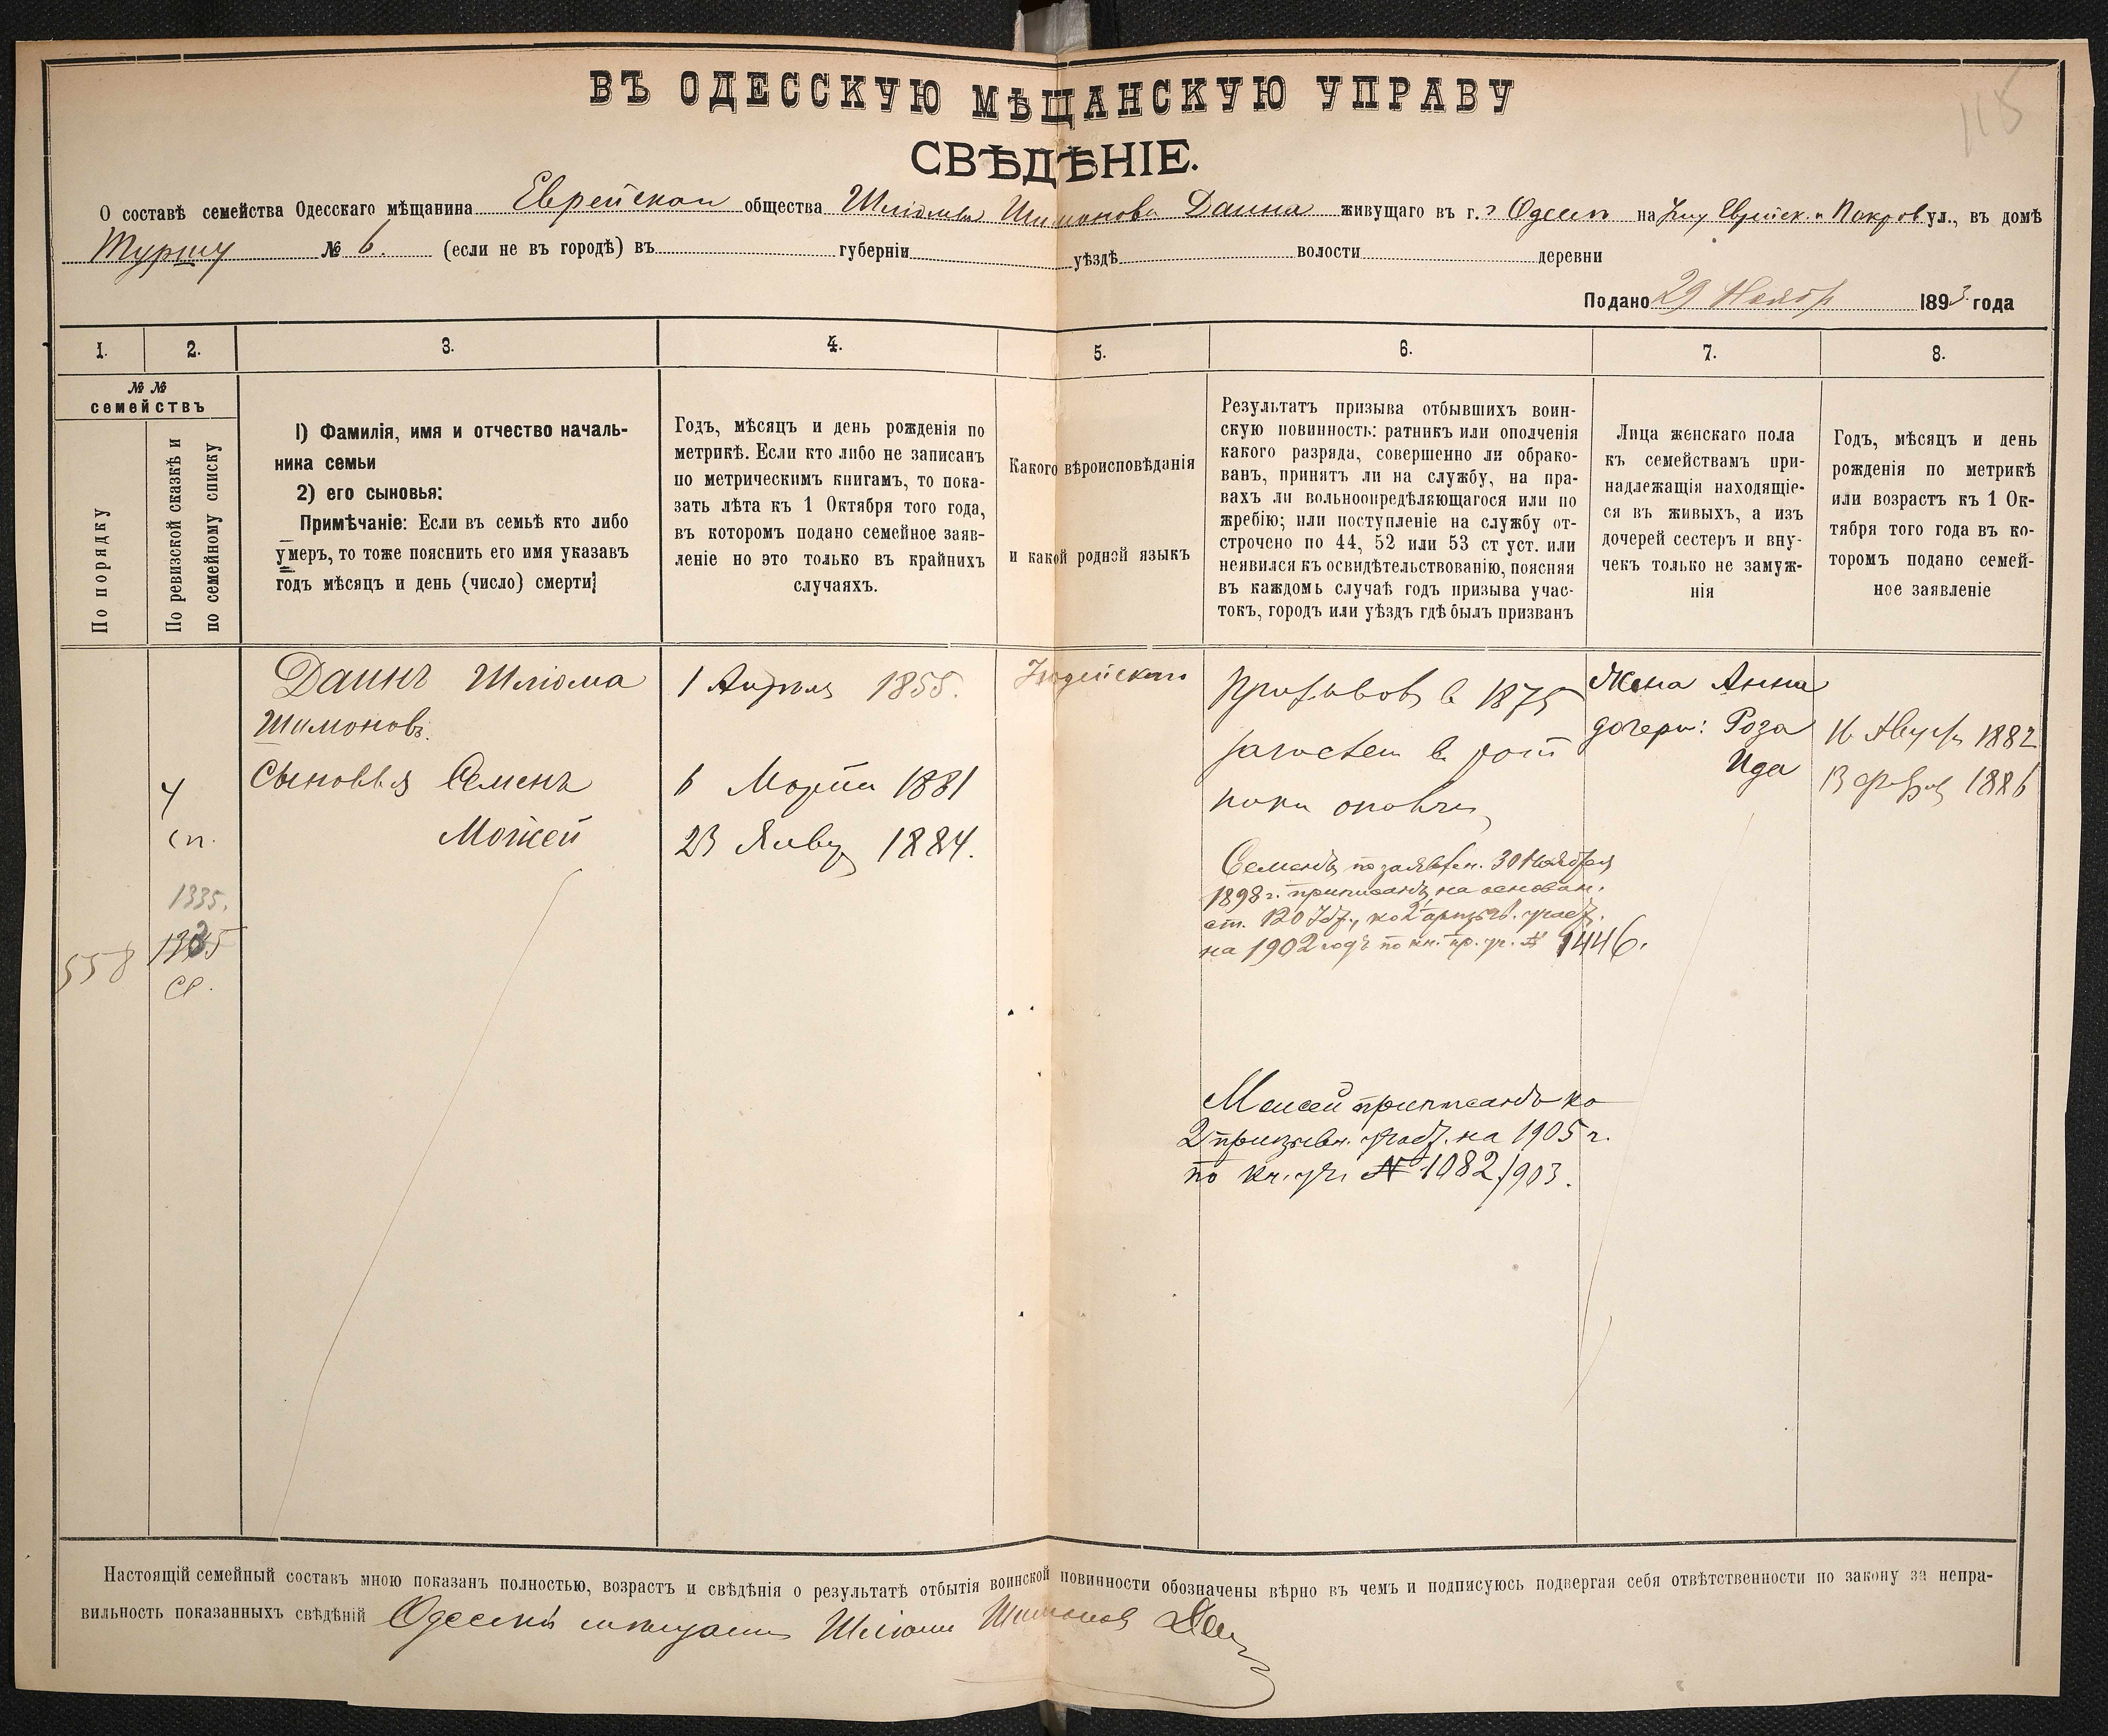 115
ВЪ ОДЕССКУЮ МѢЩАНСКУЮ УПРАВУ
СВѢДѢНІЕ.
О составѣ семейства Одесскаго мѣщанина Еврейскаго общества Шліомы Шимонова Даина живущаго въ г. Одессѣ на углу Еврейск. и Покров. ул., въ домѣ
№ 6. (если не въ городѣ) въ губерніи уѣздѣ волости деревни
Подано 29 Ноябр 1893 года
1. 2. 3. 4. 5. 6. 7. 8.
№ №
семействъ
По порядку
По ревизской сказкѣ и
по семейному списку
1) Фамилія, имя и отчество началь-
ника семьи
2) его сыновья:
Примѣчаніе: Если въ семьѣ кто либо
умеръ, то тоже пояснить его имя указавъ
годъ мѣсяцъ и день (число) смерти;
Годъ, мѣсяцъ и день рожденія по
метрикѣ. Если кто либо не записанъ
по метрическимъ книгамъ, то пока-
зать лѣта къ 1 Октября того года,
въ которомъ подано семейное заяв-
леніе но это только въ крайнихъ
случаяхъ.
Какого вѣроисповѣданія
и какой родной языкъ
Результатъ призыва отбывшихъ воин-
скую повинность: ратникъ или ополченія
какого разряда, совершенно ли обрако-
ванъ, принятъ ли на службу, на пра-
вахъ ли вольноопредѣляющагося или по
жребію; или поступленіе на службу от-
строчено по 44, 52 или 53 ст уст. или
неявился къ освидѣтельствованію, поясняя
въ каждомъ случаѣ годъ призыва учас-
токъ, городъ или уѣздъ гдѣ былъ призванъ
Лица женскаго пола
къ семействамъ при-
надлежащія находящіе-
ся въ живыхъ, а изъ
дочерей сестеръ и вну-
чекъ только не замуж-
нія
Годъ, мѣсяцъ и день
рожденія по метрикѣ
или возрастъ къ 1 Ок-
тября того года въ ко-
торомъ подано семей-
ное заявленіе
Даинъ Шліома
Шимоновъ.
Сыновья Семенъ
Мойсей
1 Апрѣля 1855.
6 Марта 1881
23 Янвр 1884.
Іудейскаго
в 1875
зачислен в рат
ники ополчен
Жена Анна
дочери: Роза
Ида
16 Август 1882
13 февр 1886
4
сп.
1335.
1335
558
Семенъ по заявлен. 30 Ноября
1898 г. приписанъ на основан.
ст. 120 Уст., ко 2 призыв. участ.
на 1902 годъ по кн. пр. уч. № 1446.
Моисей приписанъ ко
2 призывн. участ. на 1905 г.
по кн. уч. № 1082/903.
Настоящій семейный составъ мною показанъ полностью, возрастъ и свѣдѣнія о результатѣ отбытія воинской повинности обозначены вѣрно въ чемъ и подписуюсь подвергая себя отвѣтственности по закону за непра-
вильность показанныхъ свѣдѣній Одесскій мѣщанин Шліома Шимонов